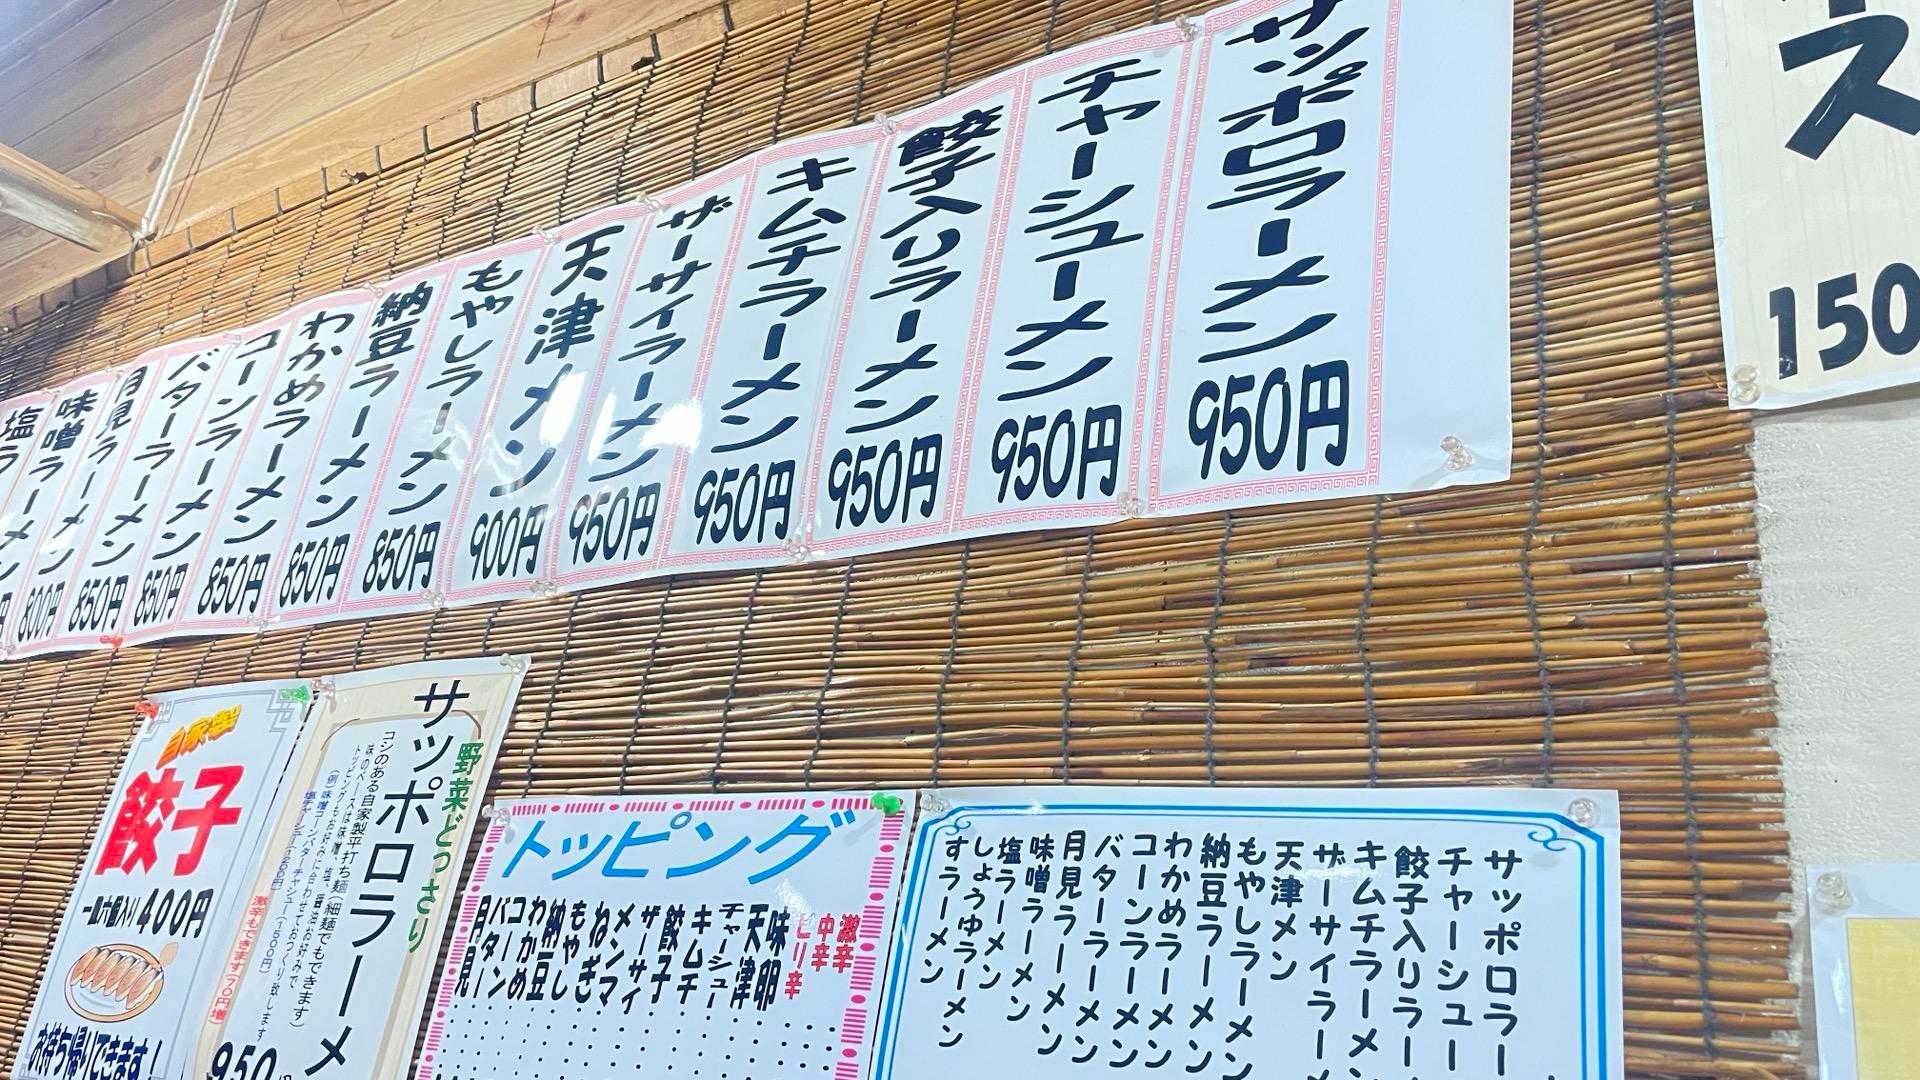 サッポロラーメン 950円
チャーシューメン 950円
餃子入りラーメン 950円
キムチラーメン 950円
ザーサイラーメン 950円
天津メン 900円
もやしラーメン 850円
納豆ラーメン 850円
わかめラーメン 850円
コーンラーメン 850円
バターラーメン 850円
月見ラーメン 850円
味噌ラーメン 800円
塩ラーメン
ス
150
自家製
餃子
一皿六個入り 400円
お持ち帰りできます!
野菜どっさり
サッポロラーメ
コシのある自家製平打ち麺(細麺でもできます)
味のベースは味噌、塩、醤油お好みで
トッピングもお好みに合わせておつくり致します
激辛もできます(70円増)
950
トッピング
激辛
中辛
ピリ辛
味卵
天津
チャーシュー
キムチ
餃子
ザーサイ
メンマ
ねぎ
もやし
納豆
わかめ
コーン
バター
月見
サッポロラー
チャーシュー
餃子入りラー
キムチラーメン
ザーサイラーメ
天津メン
もやしラーメン
納豆ラーメン
わかめラーメン
コーンラーメン
バターラーメン
月見ラーメン
味噌ラーメン
塩ラーメン
しょうゆラーメン
すラーメン